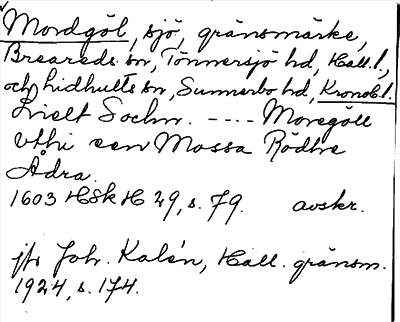 Mordgöl, sjö, gränsmärke,
Breareds sn, Tönnersjö hd, Hall. l.,
och Lidhults sn, Sunnerbo hd, Kronob. l.
Sochn. ---- Moregöll
vthi een Mossa Rödhe
Ådra.
1603 HSkH 29, s. 79. avskr.
jfr Joh. Kalén, Hall. gränsm.
1924, s. 174.